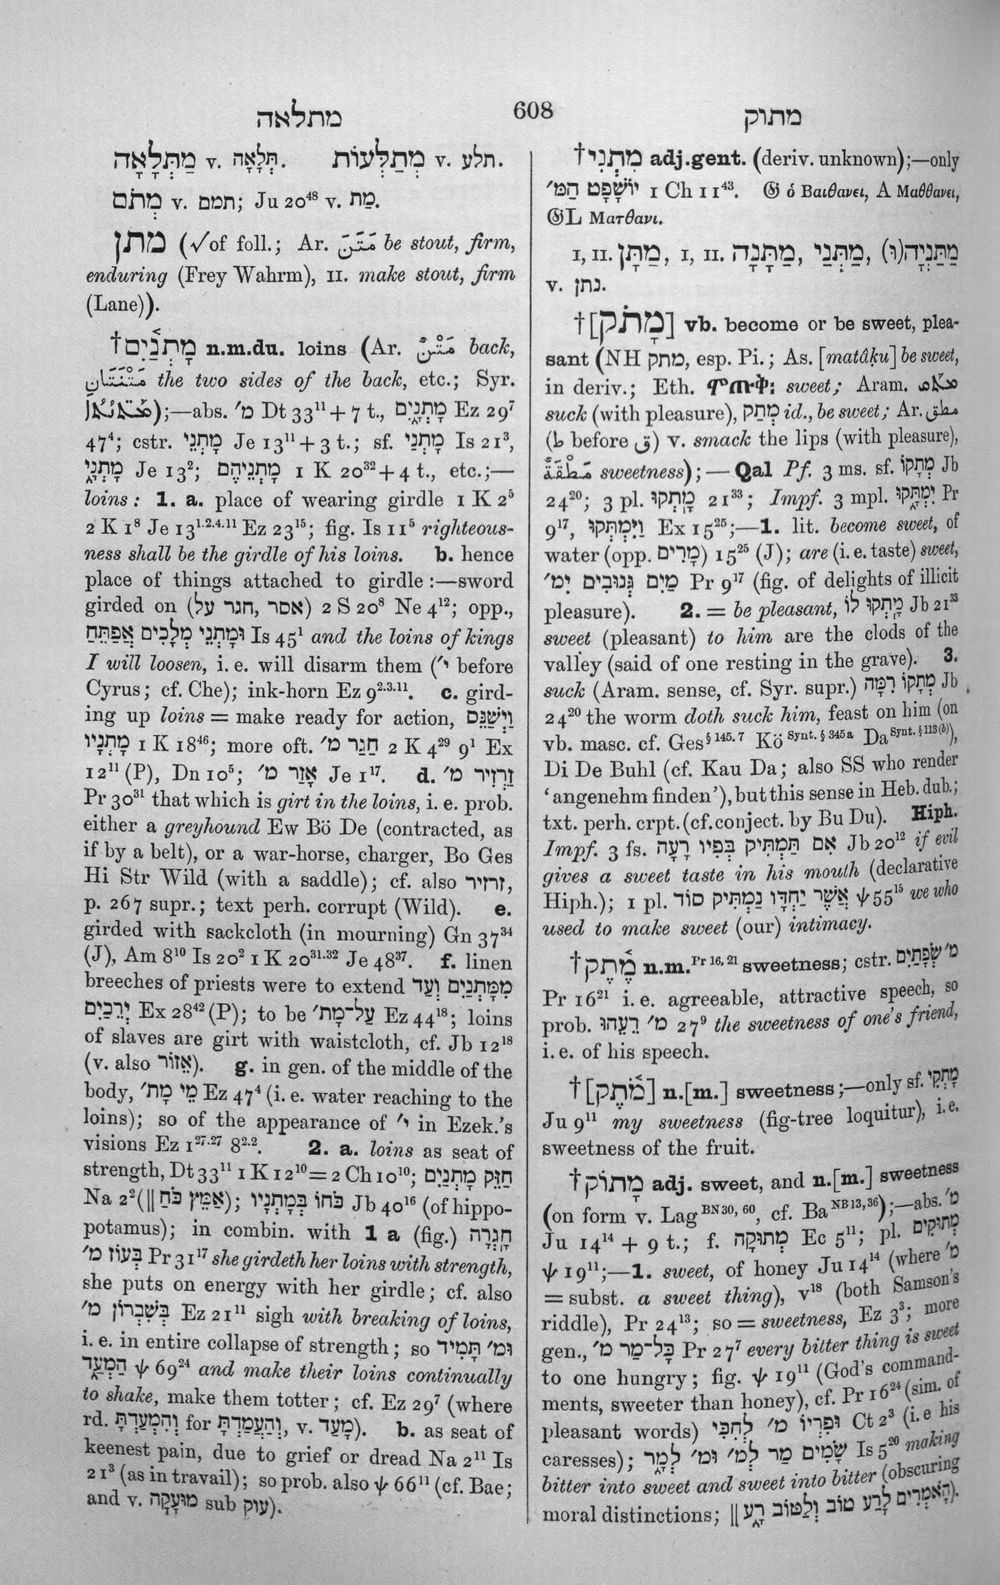 מתלאה
608
מתוק
מַתְּלָאָה v. תְּלָאָה. מְתַלְּעוֹת v. תלע.
מְתֹם v. תמם; Ju 20⁴⁸ v. מַת.
מתן (√of foll.; Ar. مَتُنَ be stout, firm,
enduring (Frey Wahrm), II. make stout, firm
(Lane)).
†מָתְנַ֫יִם n.m.du. loins (Ar. مَتْنٌ back,
the two sides of the back, etc.; Syr.
);—abs. מ׳ Dt 33¹¹ + 7 t., מָתְנָ֑יִם Ez 29⁷
47⁴; cstr. מָתְנֵי Je 13¹¹ + 3 t.; sf. מָתְנַי Is 21³,
מָתְנָ֑י Je 13²; מָתְנֵיהֶם 1 K 20³² + 4 t., etc.;—
loins: 1. a. place of wearing girdle 1 K 2⁵
2 K 1⁸ Je 13¹·²·⁴·¹¹ Ez 23¹⁵; fig. Is 11⁵ righteous-
ness shall be the girdle of his loins. b. hence
place of things attached to girdle:—sword
girded on (אסר, חגר על) 2 S 20⁸ Ne 4¹²; opp.,
וּמָתְנֵי מְלָכִים אֲפַתֵּחַ Is 45¹ and the loins of kings
I will loosen, i. e. will disarm them (י׳ before
Cyrus; cf. Che); ink-horn Ez 9²·³·¹¹. c. gird-
ing up loins = make ready for action, וַיְשַׁנֵּס
מָתְנָיו 1 K 18⁴⁶; more oft. חָגַר מ׳ 2 K 4²⁹ 9¹ Ex
12¹¹ (P), Dn 10⁵; אָזַר מ׳ Je 1¹⁷. d. זַרְזִיר מ׳
Pr 30³¹ that which is girt in the loins, i. e. prob.
either a greyhound Ew Bö De (contracted, as
if by a belt), or a war-horse, charger, Bo Ges
Hi Str Wild (with a saddle); cf. also זרזיר,
p. 267 supr.; text perh. corrupt (Wild). e.
girded with sackcloth (in mourning) Gn 37³⁴
(J), Am 8¹⁰ Is 20² 1 K 20³¹·³² Je 48³⁷. f. linen
breeches of priests were to extend מִמָּתְנַיִם וְעַד
יְרֵכַיִם Ex 28⁴² (P); to be עַל־מָת׳ Ez 44¹⁸; loins
of slaves are girt with waistcloth, cf. Jb 12¹⁸
(v. also אֵזוֹר). g. in gen. of the middle of the
body, מֵי מָת׳ Ez 47⁴ (i. e. water reaching to the
loins); so of the appearance of י׳ in Ezek.'s
visions Ez 1²⁷·²⁷ 8²·². 2. a. loins as seat of
strength, Dt 33¹¹ 1 K 12¹⁰ = 2 Ch 10¹⁰; חַזֵּק מָתְנַיִם
Na 2² (|| אַמֵּץ כֹּחַ); כֹּחוֹ בְמָתְנָיו Jb 40¹⁶ (of hippo-
potamus); in combin. with 1 a (fig.) חָֽגְרָה
בְעוֹז מ׳ Pr 31¹⁷ she girdeth her loins with strength,
she puts on energy with her girdle; cf. also
בְּשִׁבְרוֹן מ׳ Ez 21¹¹ sigh with breaking of loins,
i. e. in entire collapse of strength; so וּמ׳ תָּמִיד
הַמְעַד ψ 69²⁴ and make their loins continually
to shake, make them totter; cf. Ez 29⁷ (where
rd. וְהִמְעַדְתָּ for וְהַעֲמַדְתָּ, v. מָעַד). b. as seat of
keenest pain, due to grief or dread Na 2¹¹ Is
21³ (as in travail); so prob. also ψ 66¹¹ (cf. Bae;
and v. מוּעָקָה sub עוק).
†מִתְנִי adj.gent. (deriv. unknown);—only
יוֹשָׁפָט הַמּ׳ 1 Ch 11⁴³. 𝔊 ὁ Βαιθανει, A Μαθθανει,
𝔊L Ματθανι.
I, II. מַתָּן, I, II. מַתָּנָה, מַתְּנַי, מַתַּנְיָה(וּ)
v. נתן.
†[מָתֹק] vb. become or be sweet, plea-
sant (NH מתק, esp. Pi.; As. [matâḳu] be sweet,
in deriv.; Eth. sweet; Aram.
suck (with pleasure), מְתַק id., be sweet; Ar. مطق
(ط before ق) v. smack the lips (with pleasure),
مَطْقَةٌ sweetness);—Qal Pf. 3 ms. sf. מְתָקוֹ Jb
24²⁰; 3 pl. מָֽתְקוּ 21³³; Impf. 3 mpl. יִמְתָּ֑קוּ Pr
9¹⁷, וַיִּמְתְּקוּ Ex 15²⁵;—1. lit. become sweet, of
water (opp. מָרִים) 15²⁵ (J); are (i. e. taste) sweet,
מַיִם גְּנוּבִים יִמ׳ Pr 9¹⁷ (fig. of delights of illicit
pleasure). 2. = be pleasant, מָֽתְקוּ לוֹ Jb 21³³
sweet (pleasant) to him are the clods of the
valley (said of one resting in the grave). 3.
suck (Aram. sense, cf. Syr. supr.) מְתָקוֹ רִמָּה Jb
24²⁰ the worm doth suck him, feast on him (on
vb. masc. cf. Ges§ 145. 7 Kö Synt. § 345a Da Synt. § 113(b)),
Di De Buhl (cf. Kau Da; also SS who render
'angenehm finden'), but this sense in Heb. dub.;
txt. perh. crpt. (cf. conject. by Bu Du). Hiph.
Impf. 3 fs. אִם תַּמְתִּיק בְּפִיו רָעָה Jb 20¹² if evil
gives a sweet taste in his mouth (declarative
Hiph.); 1 pl. אֲשֶׁר יַחְדָּו נַמְתִּיק סוֹד ψ 55¹⁵ we who
used to make sweet (our) intimacy.
†מֶ֫תֶק n.m.Pr 16, 21 sweetness; cstr. מ׳ שְׂפָתַיִם
Pr 16²¹ i. e. agreeable, attractive speech, so
prob. מ׳ רֵעֵהוּ 27⁹ the sweetness of one's friend,
i. e. of his speech.
†[מֹ֫תֶק] n.[m.] sweetness;—only sf. מָתְקִי
Ju 9¹¹ my sweetness (fig-tree loquitur), i. e.
sweetness of the fruit.
†מָתוֹק adj. sweet, and n.[m.] sweetness
(on form v. Lag BN 30, 60, cf. Ba NB 13, 36);—abs. מ׳
Ju 14¹⁴ + 9 t.; f. מְתוּקָה Ec 5¹¹; pl. מְתוּקִים
ψ 19¹¹;—1. sweet, of honey Ju 14¹⁴ (where מ׳
= subst. a sweet thing), v¹⁸ (both Samson's
riddle), Pr 24¹³; so = sweetness, Ez 3³; more
gen., כָּל־מַר מ׳ Pr 27⁷ every bitter thing is sweet
to one hungry; fig. ψ 19¹¹ (God's command-
ments, sweeter than honey), cf. Pr 16²⁴ (sim. of
pleasant words) וּפִרְיוֹ מ׳ לְחִכִּי Ct 2³ (i. e his
caresses); שָׂמִים מַר לְמ׳ וּמ׳ לְמָר Is 5²⁰ making
bitter into sweet and sweet into bitter (obscuring
moral distinctions; || הָאֹמְרִים לָרַע טוֹב וְלַטּוֹב רָע).